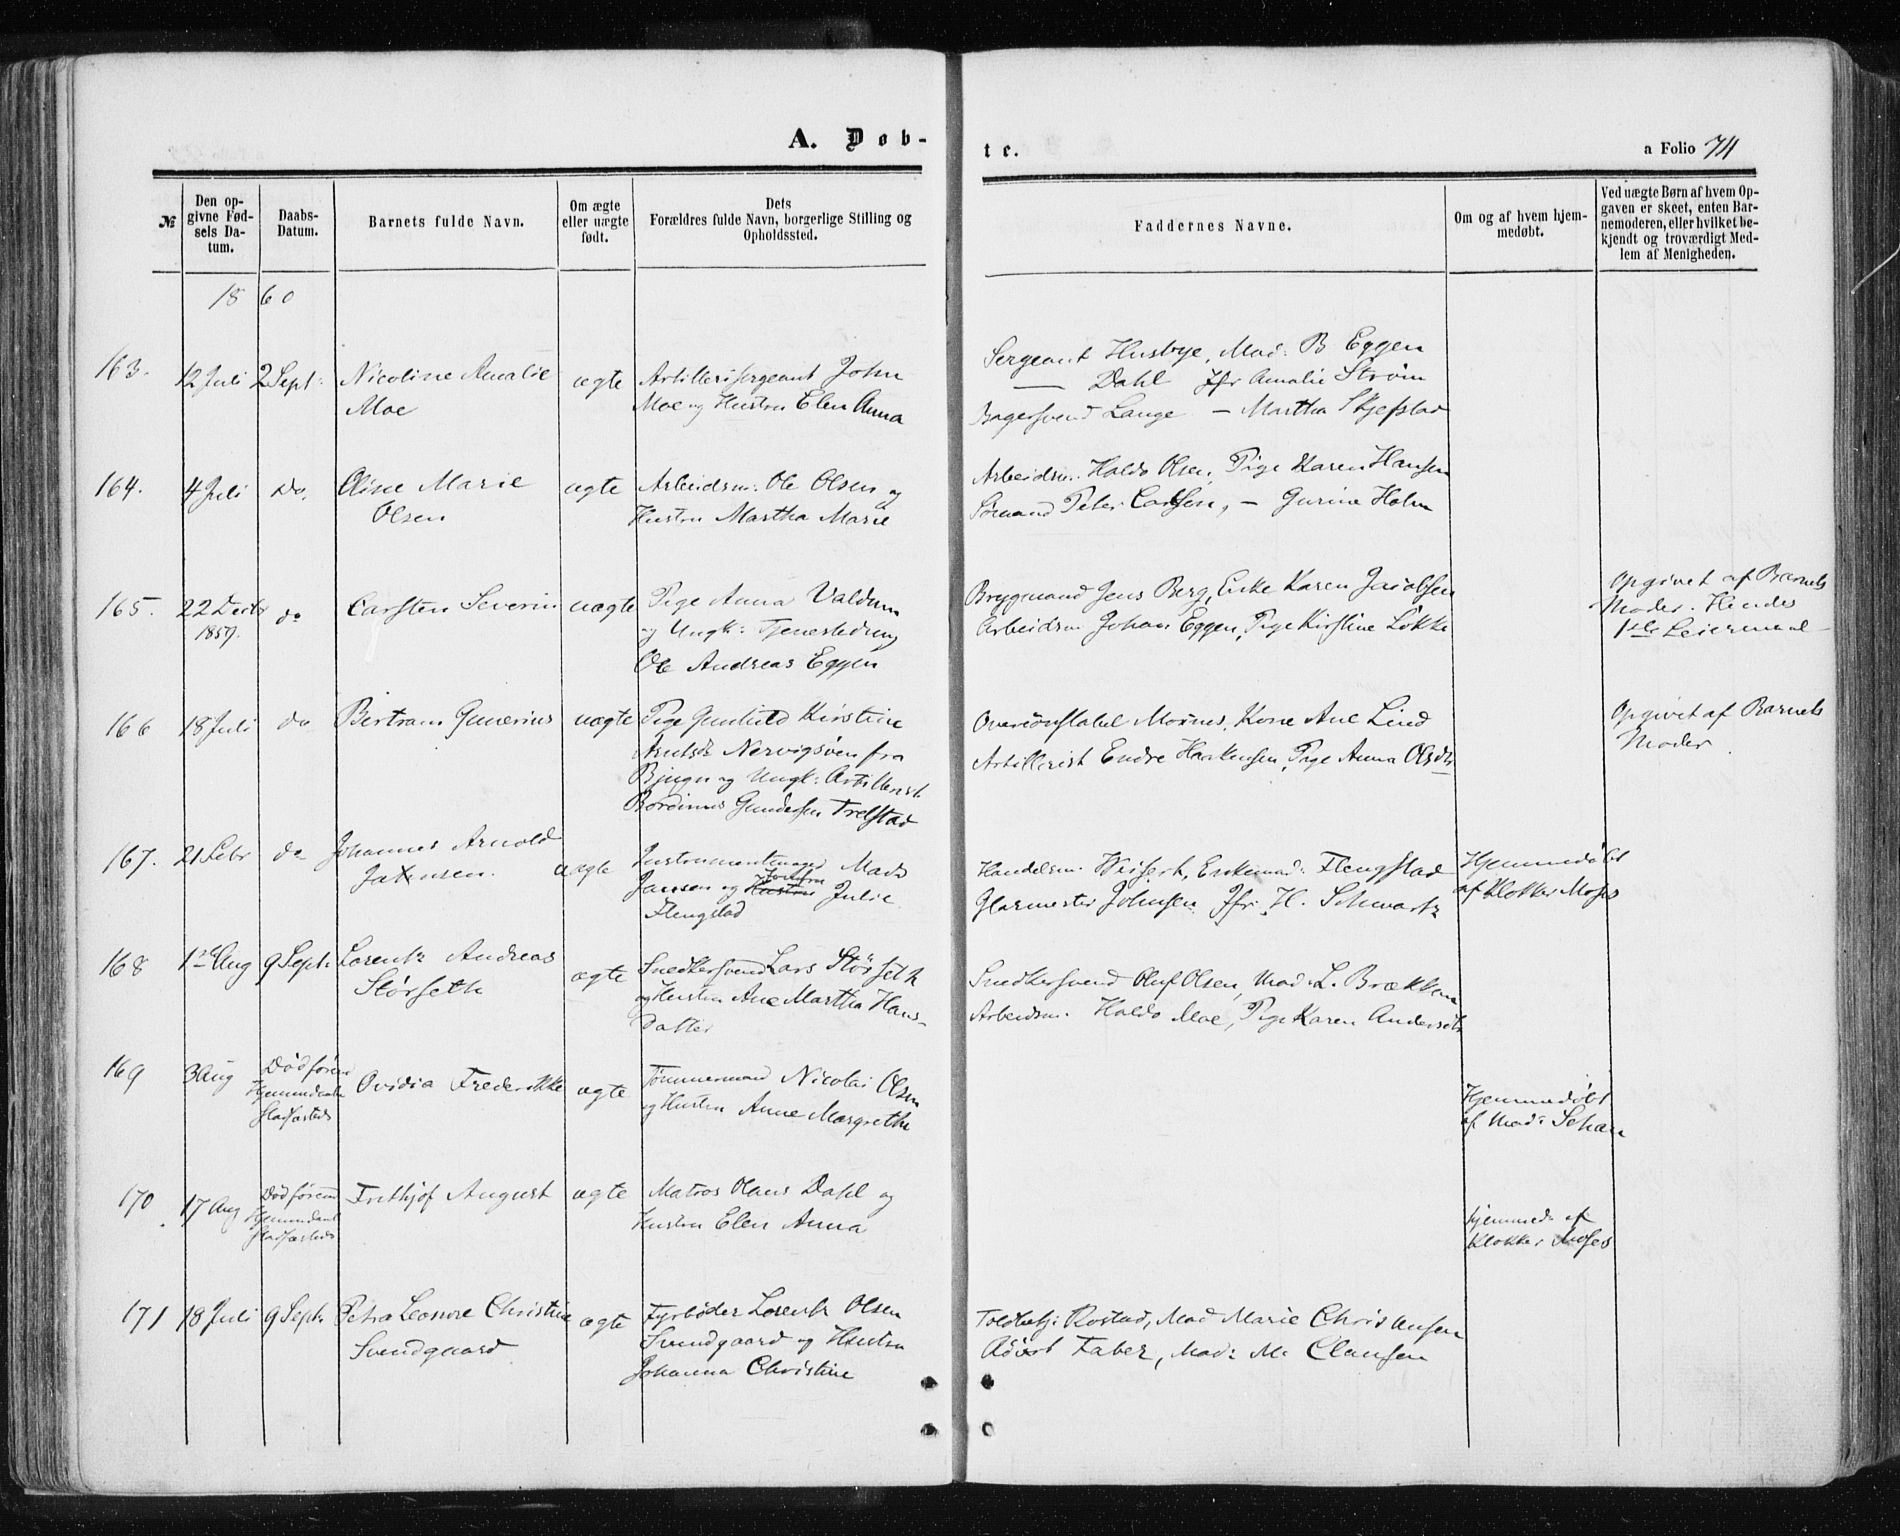 A. Døb-
te.
a Folio 74
№
Den opgivne Fødsels Datum.
Daabs-Datum.
Barnets fulde Navn.
Om ægte eller uægte født.
Dets Forældres fulde Navn, borgerlige Stilling og Opholdssted.
Faddernes Navne.
Om og af hvem hjemmedøbt.
Ved uægte Børn af hvem Opgaven er skeet, enten Barnemoderen, eller hvilket bekjendt og troværdigt Medlem af Menigheden.
1860
163.
12 Juli
2 Sept:
Nicoline Amalie
Moe
ægte
Artillerisergeant John
Moe og Hustru Elen Anna
Sergeant Husbye, Mad: B Eggen
— Dahl Jfr Amalie Strøm
Bagersvend Lange — Martha Skjefstad
164.
4 Juli
do.
Oline Marie
Olsen
ægte
Arbeidsm: Ole Olsen og
Hustru Martha Marie
Arbeidsm. Haldo Olsen, Pige Karen Hansen
Sømand Peter Carlsen, — Gurine Holm
165.
22 Decbr
1859.
do
Carsten Severin
uægte
Pige Anna Valdum
og Ungk: Tjenestedreng
Ole Andreas Eggen
Brygmand Jens Berg, Enke Karen Jacobsen
Arbeidsm Johan Eggen, Pige Kirstine Løkke
Opgivet af Barnets
Moder. Hendes
1ste Leiermaal
166
18 Juli
do
Bertram Gunerius
uægte
Pige Gunhild Kirstine
Arntsdr Nervigsøen fra
Bjugn og Ungk: Artillerist
Bordinus Gundersen Trelstad
Overconstabel Moines, Kone Ane Lind
Artillerist Endre Haakensen, Pige Anna Olsdtr
Opgivet af Barnets
Moder.
167.
21 Febr
do
Johannes Arnold
Jansen.
uægte
Instrumentmager Mads
Jansen og Hustru Jomfru Julie
Flengstad
Handelsm. Weisert, Enkemad: Flengstad
Glarmester Johnsen Jfr. H. Schwartz
Hjemmedøbt
af Klokker Moses
168
1ste Aug
9 Sept:
Lorentz Andreas
Störseth
ægte
Snedkersvend Lars Störseth
og Hustru Ane Martha Hans-
Datter
Snedkersvend Oluf Olsen, Mad: L. Brækken
Arbeidsm. Haldo Moe, Pige Karen Andersdtr
169
3 Aug
Död förend
Hjemmedaaben
stadfæstedes
Ovidia Frederikke
ægte
Tømmermand Nicolai Olsen
og Hustru Anne Margrethe
Hjemmedøbt
af Mad: Schan
170
17 Aug
Död förend
Hjemmedaab
stadfæstedes
Frithjof August
ægte
Matros Olaus Dahl og
Hustru Elen Anna
hjemmed: af
Klokker Moses
171
18 Juli
9 Septr
Petra Leonore Christine
Svendgaard
ægte
Fyrbøder Lorentz Olsen
Svendgaard og Hustru
Johanna Christine
Toldbetj: Rostad, Mad Marie Christiansen
Faber, Mad: M. Clausen